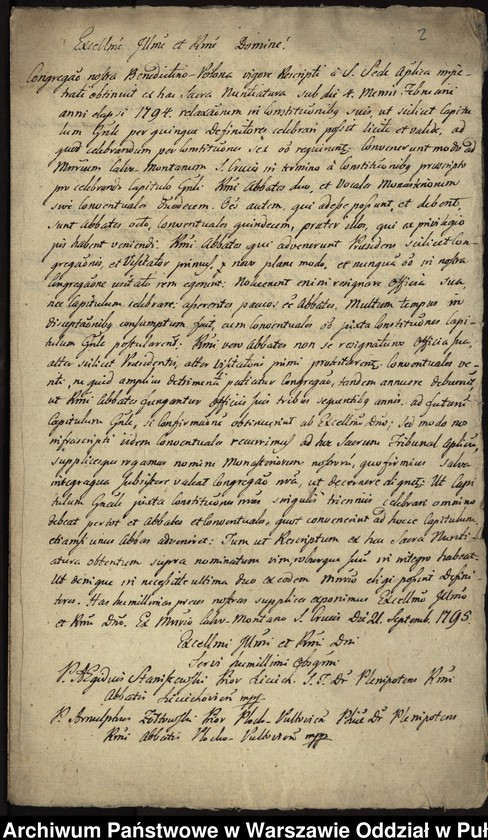 2
Excellme Illme et Rme Domine!
Congregao nostra Benedictino-Polona vigore Rescripti à S. Sede Aplica impe-
trati obtinuit ex hac Sacra Nuntiatura sub die 4. Mensis Febru ani
anni elapsi 1794. relaxationem in Constitutionibq suis, ut scilicet Capitu-
lum Gnle per quinque Definitores celebrari posset licite et valide, ad
quod celebrandum per Constitutiones sex os requirunt; convenerunt modo ad
Mnrium Calvo Montanum S. Crucis in termino à Constitutionibq præscripto
pro celebrando Capitulo Gnli Rmi Abbates duo, et Vocales Monasteriorum
sive Conventuales duodecim. Oes autem, qui adesse possunt, et debent,
sunt Abbates octo, Conventuales quindecem, præter illos, qui ex privilegio
jus habent veniendi. Rmi Abbates qui advenerunt Præsidens scilicet Con-
gregaonis, et Visitator primus, novo plane modo, et nunquam in nostra
Congregaone usitato rem egerunt: Noluerunt enim resignare officia sua,
nec Capitulum celebrare: asserentes paucos esse Abbates. Multum tempus in
disceptaonibq consumptum fuit, cum Conventuales os juxta Constitutiones Capi-
tulum Gnle postularent: Rmi vero Abbates non se resignaturos Officia sua,
alter scilicet Præsidentis, alter Visitatoris primi protestarent, Conventuales ve-
nti, ne quid amplius detrimenti patiatur Congregao, tandem annuere debuerunt,
ut Rmi Abbates fungantur officiis suis tribus sequentibq annis, ad futurum
Capitulum Gnle, si Confirmaonem obtinuerint ab Excellmo Dno; Sed modo nos
infrascripti iidem Conventuales recurrimus ad hoc Sacrum Tribunal Aplicum,
supplicesque rogamus nomine Monasteriorum nostrorum, quo firmius salva
integraque subsistere valeat Congregao nra, ut decernere dignet: Ut Capi-
tulum Gnale juxta Constitutiones nras singulis trienniis celebrari omnino
debeat per tot et Abbates et Conventuales, quot convenerint ad hocce Capitulum,
etiamsi unus Abbas adveniret: Tum ut Rescriptum ex hac Sacra Nunti-
atura obtentum supra nominatum vim, roburque suum in integro habeat.
Ut denique in necessitate ultima duo ex eodem Mnrio eligi possint Defini-
tores. Has humillimas preces nostras supplices exponimus Excellmo Illmo
et Rmo Dno. Ex Mnrio Calvo-Montano S. Crucis Die 21 Septemb. 1795.
Excellmi Illmi et Rmi Dni
Servi humillimi Obsqmi
P. Ægidius Staniszewski Prior Sieciech. S. T. Dr Plenipotens Rmi
Abbatis Sieciechovien mpp
P. Arnulphus Żółtowski Prior Ploch-Pultovien Phiæ Dr Plenipotens
Rmi Abbatis Plocho-Pultovien mpp
Archiwum Państwowe w Warszawie Oddział w Puł